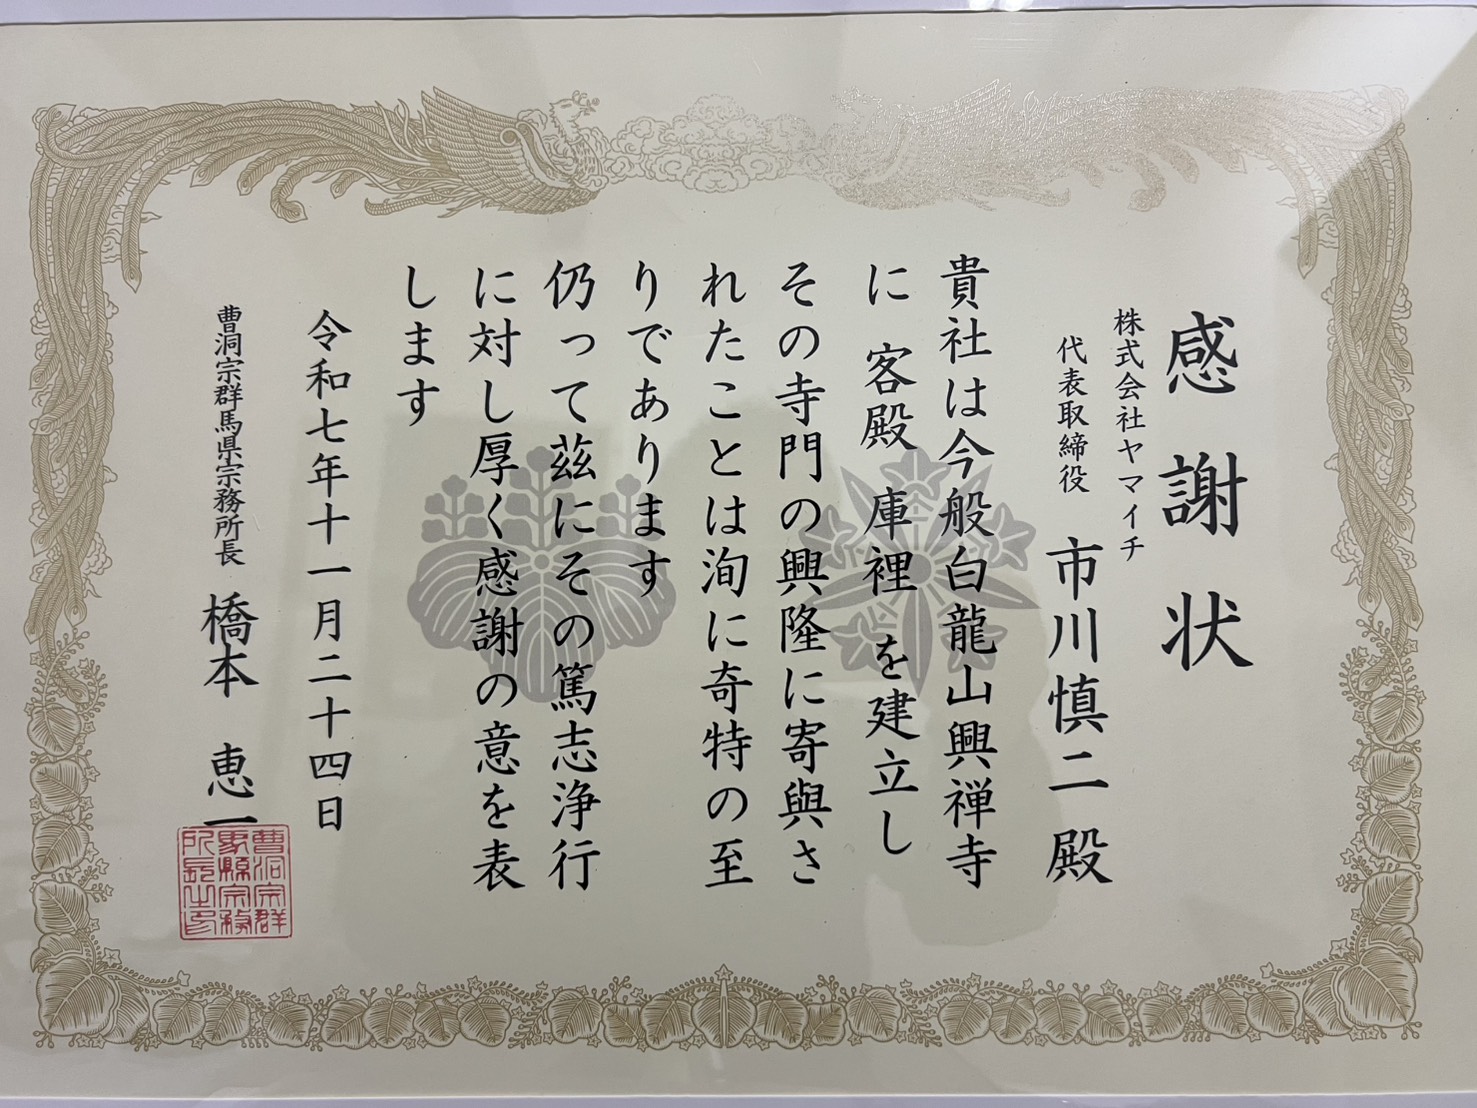 感謝状
株式会社ヤマイチ
代表取締役 市川慎二殿
貴社は今般白龍山興禅寺
に 客殿 庫裡 を建立し
その寺門の興隆に寄與さ
れたことは洵に奇特の至
りであります
仍って茲にその篤志浄行
に対し厚く感謝の意を表
します
令和七年十一月二十四日
曹洞宗群馬県宗務所長 橋本 恵一
曹洞宗群
馬縣宗務
所長之印